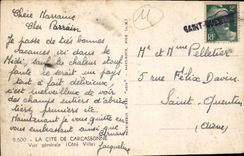 Chère Marraine
Cher Parrain
Je passe de très bonnes
vacances ici dans le
Midi, sans les chaleurs étouf
fante ce serait un pays
tout à fait délicieux.
c'est merveilleux de voir
des champs entiers d'abrico
tiers, pruniers etc...
Maintenant je vous quitte en
vous embrassant ainsi que
Jacqueline
9.500 - LA CITE DE CARCASSONNE
Vue générale (Côté Ville)
SAINT
Mr et Mme Pelletier
5 rue Félix Davin
Saint-Quentin
(Aisne)